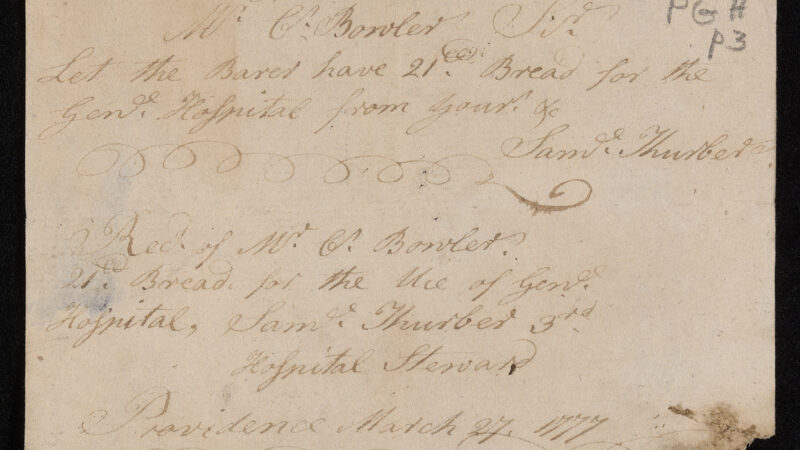 PGH
P3
Mr. Cs. Bowler Sir.
Let the Barer have 21 Bread for the
Genl. Hospital from Yours. &c
Saml. Thurber
Recd. of Mr. Cs. Bowler.
21 Bread. for the Uce of Genl.
Hospital, Saml. Thurber 3rd
Hospital Steward
Providence March 27. 1777